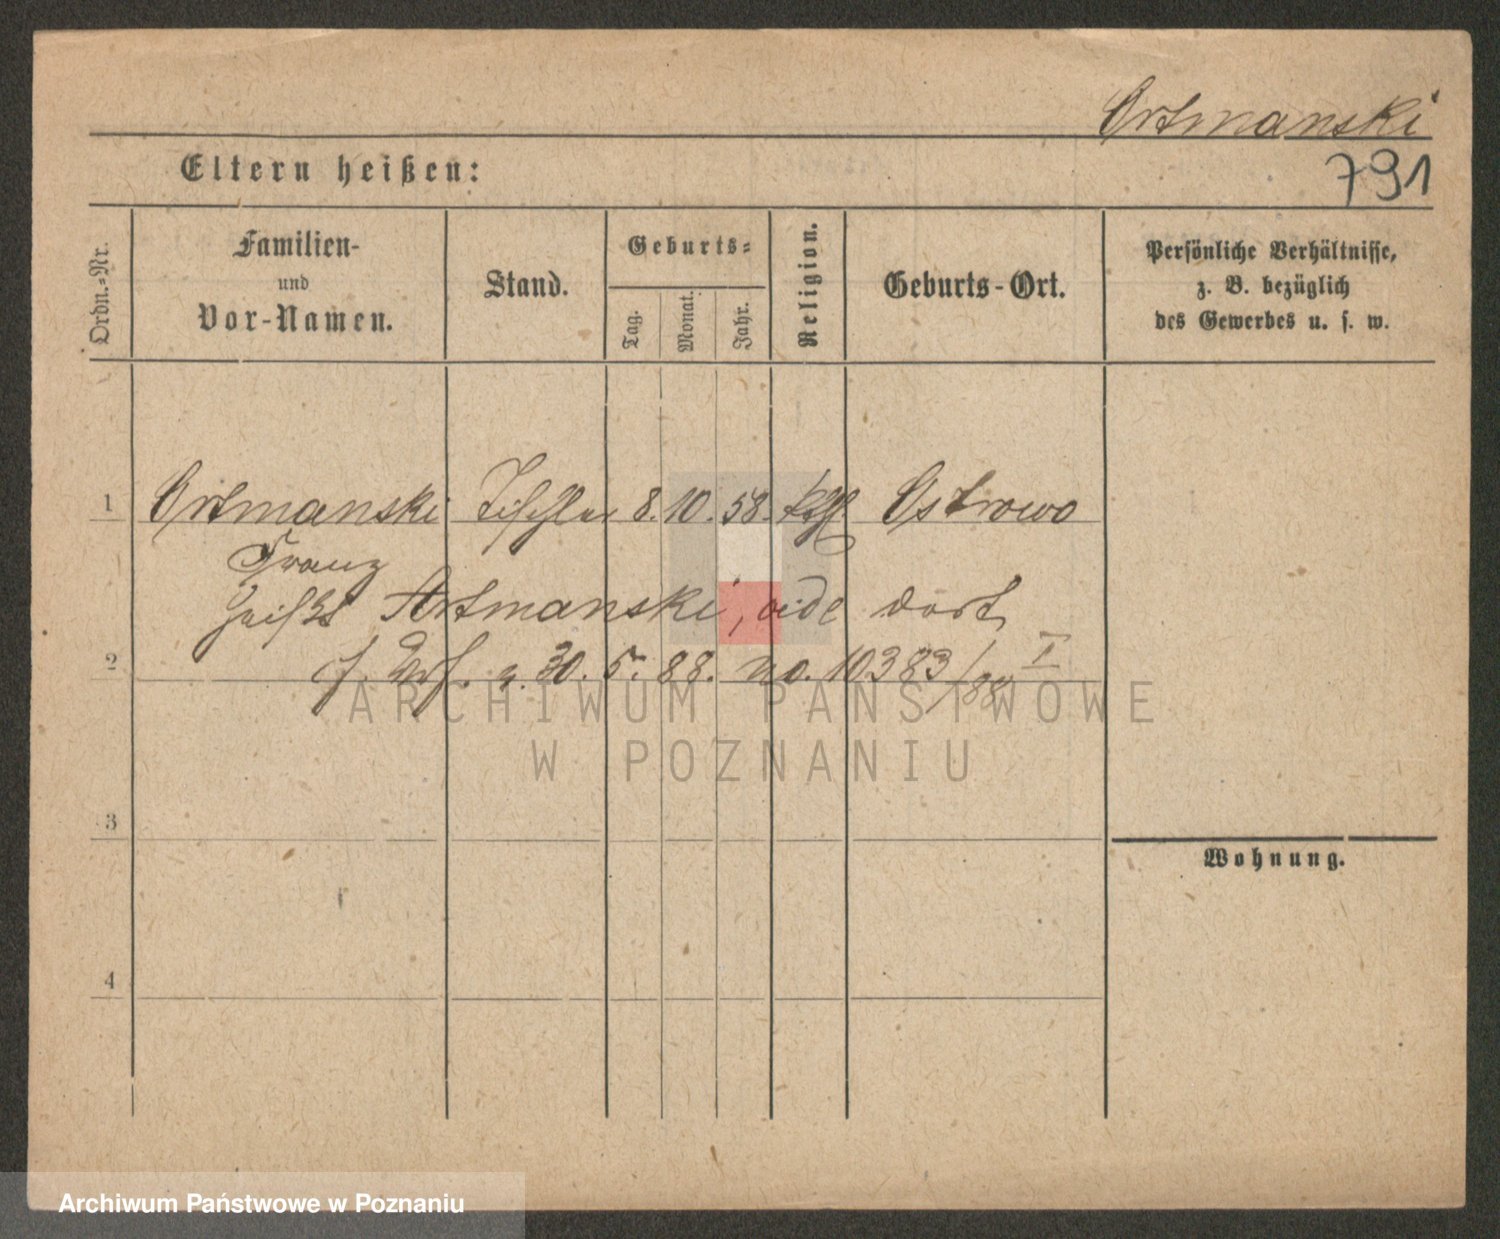 Ortmanski
Eltern heißen:
791
Ordn.-Nr.
Familien-
und
Vor-Namen.
Stand.
Geburts-
Tag.
Monat.
Jahr.
Religion.
Geburts-Ort.
Persönliche Verhältnisse,
z. B. bezüglich
des Gewerbes u. s. w.
1 Ortmanski Tischler 8. 10. 58. kth Ostrowo
Franz
heißt Artmanski, vide dort
2 30. 5. 88. no. 10383/88 I
ARCHIWUM PAŃSTWOWE
W POZNANIU
3
Wohnung.
4
Archiwum Państwowe w Poznaniu